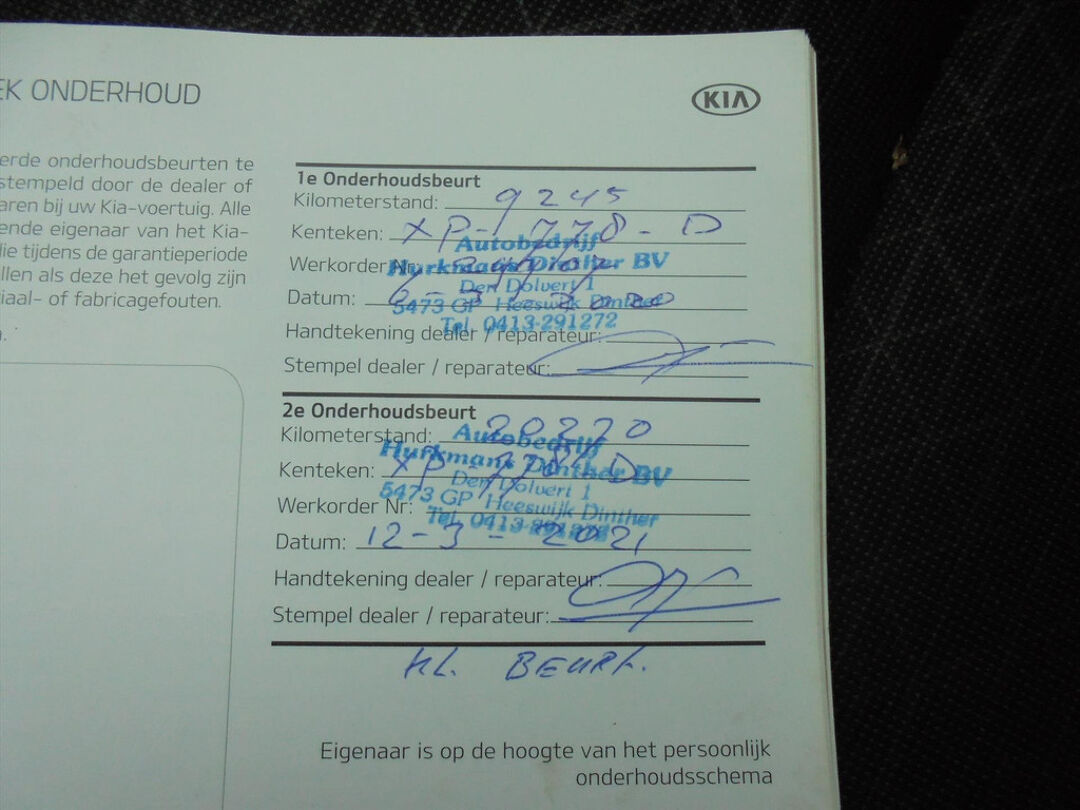 EK ONDERHOUD
KIA
erde onderhoudsbeurten te
stempeld door de dealer of
aren bij uw Kia-voertuig. Alle
ende eigenaar van het Kia-
lie tijdens de garantieperiode
llen als deze het gevolg zijn
iaal- of fabricagefouten.
1e Onderhoudsbeurt
Kilometerstand: 9245
Kenteken: XP-778-D
Autobedrijf
Werkorder Nr:
Hurkmans Dinther BV
Den Dolvert 1
Datum: 6-3-2020
5473 GP Heeswijk Dinther
Tel. 0413-291272
Handtekening dealer / reparateur:
Stempel dealer / reparateur:
2e Onderhoudsbeurt
Kilometerstand: 20220
Autobedrijf
Hurkmans Dinther BV
Kenteken: XP-778-D
Den Dolvert 1
5473 GP Heeswijk Dinther
Werkorder Nr:
Tel. 0413-291272
Datum: 12-3-2021
Handtekening dealer / reparateur:
Stempel dealer / reparateur:
KL. BEURT.
Eigenaar is op de hoogte van het persoonlijk
onderhoudsschema